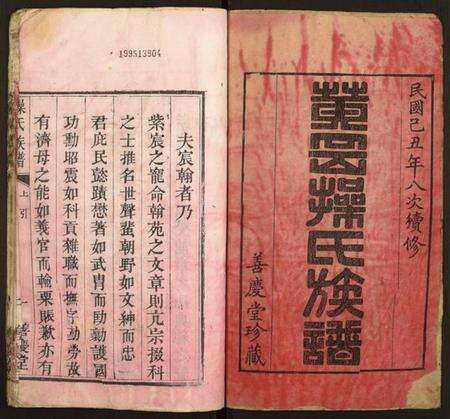 民國己丑年八次續修
董富操氏族譜
善慶堂珍藏
199513904
夫宸翰者乃
紫宸之寵命翰苑之文章則亢宗掇科
之士推名世聲蜚朝野如文紳而忠
君庶民懿蹟懋著如武胄而助勷護國
功勳昭震如科貢雜職而撫字勤勞故
有濟母之能如義官而輸粟賑歉亦有
操氏族譜
上引
一
善慶堂